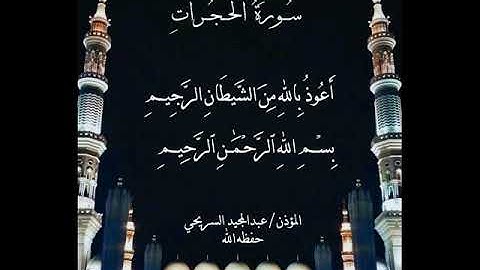 سُورَةُ الحُجُرَاتِ
أَعُوذُ بِاللهِ مِنَ الشَّيْطَانِ الرَّجِيمِ
بِسْمِ اللهِ الرَّحْمَٰنِ الرَّحِيمِ
المؤذن/عبدالمجيد السريحي
حفظه الله